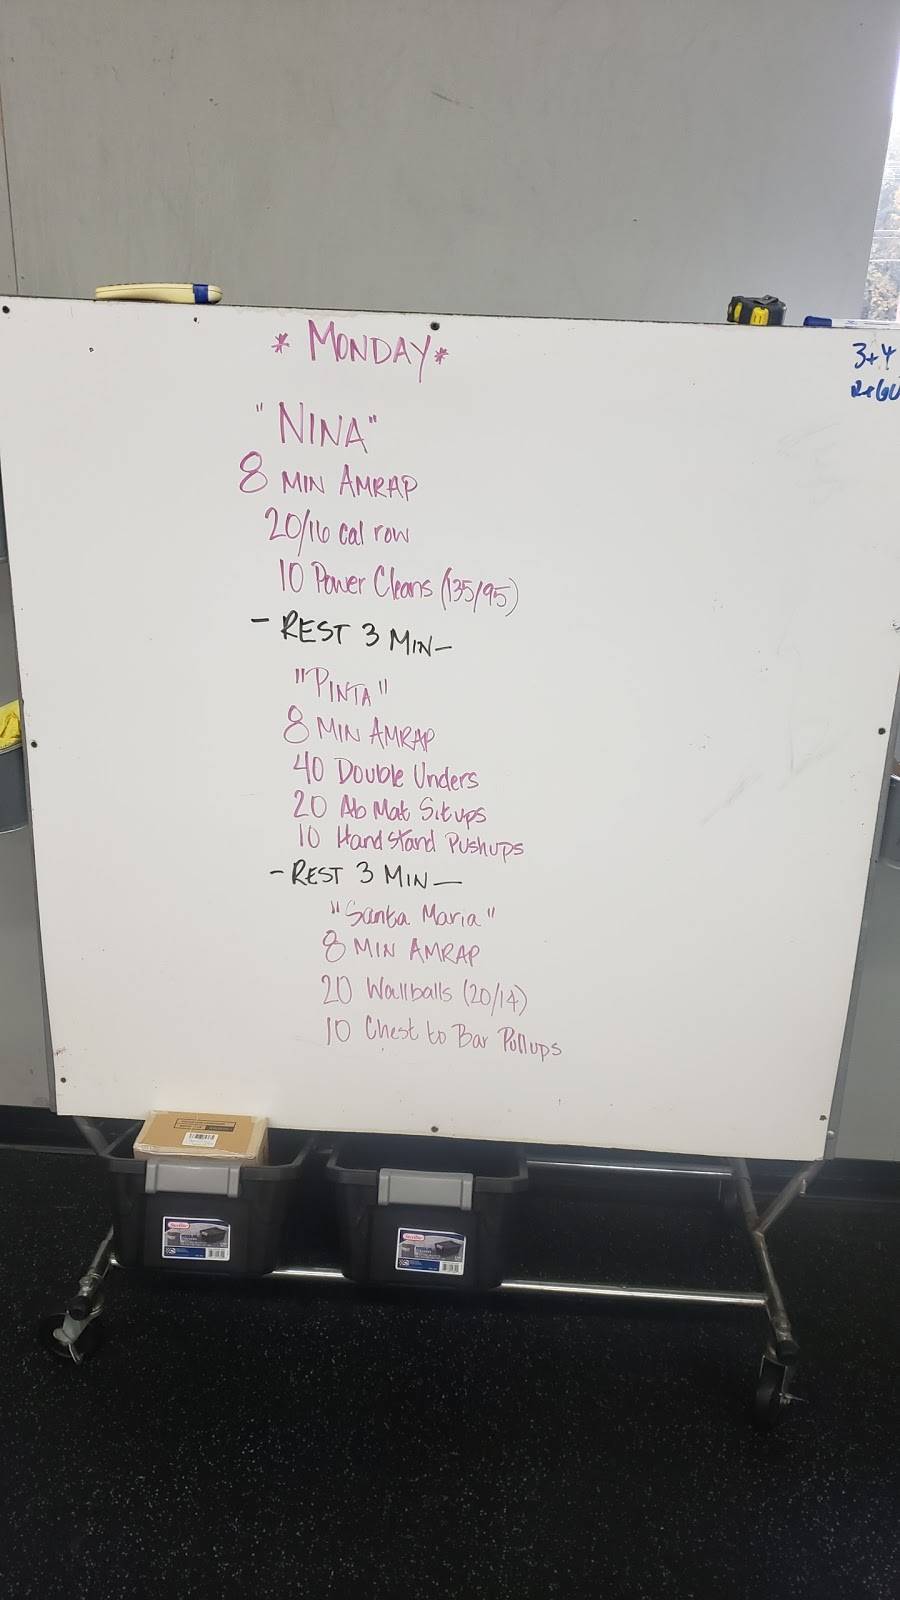 * MONDAY *
3+4
"NINA"
8 MIN AMRAP
20/16 cal row
10 Power Cleans (135/95)
- REST 3 MIN -
"PINTA"
8 MIN AMRAP
40 Double Unders
20 Ab Mat Situps
10 Hand Stand Pushups
- REST 3 MIN -
"Santa Maria"
8 MIN AMRAP
20 Wallballs (20/14)
10 Chest to Bar Pullups